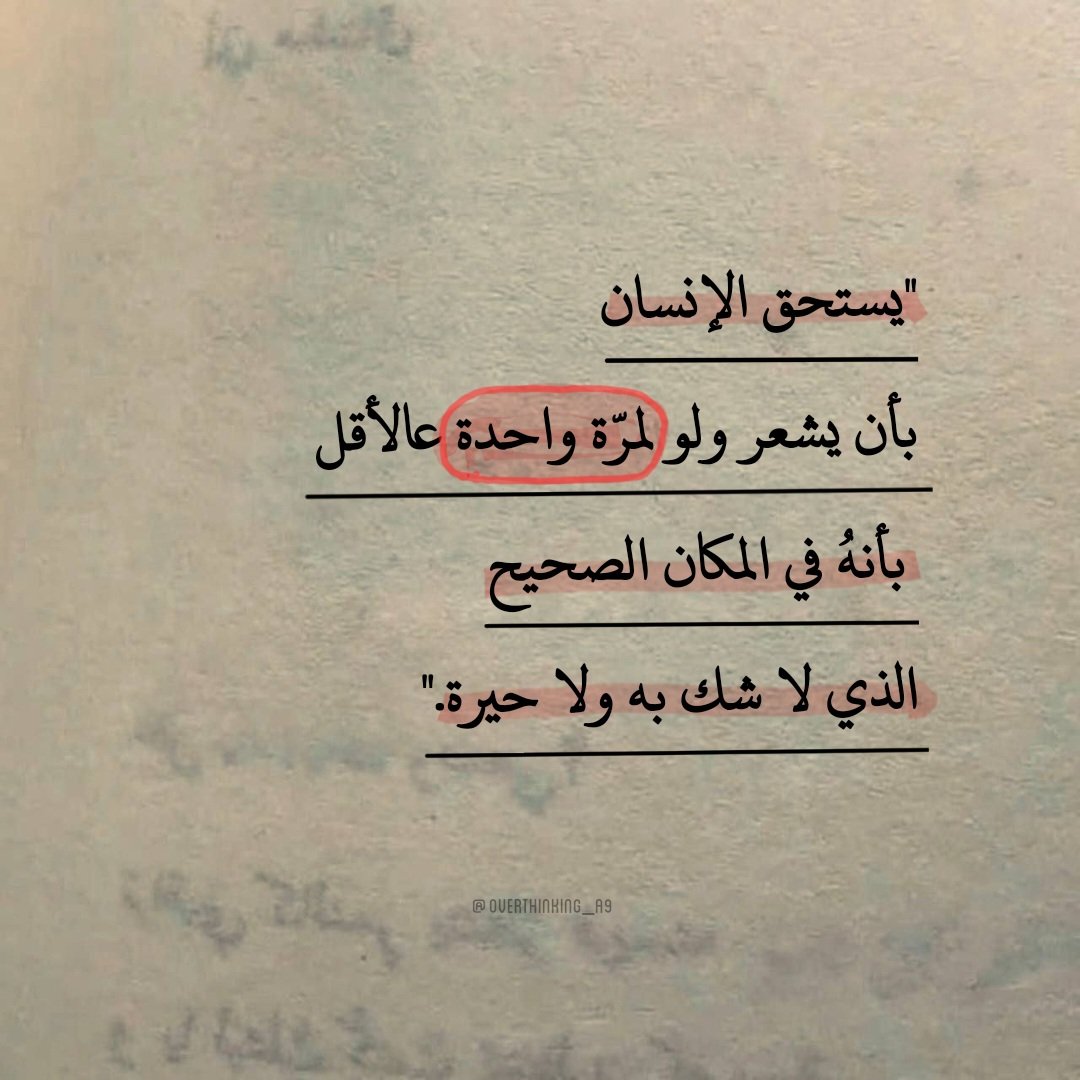 "يستحق الإنسان
بأن يشعر ولو لمرّة واحدة عالأقل
بأنهُ في المكان الصحيح
الذي لا شك به ولا حيرة."
@OVERTHINKING_A9